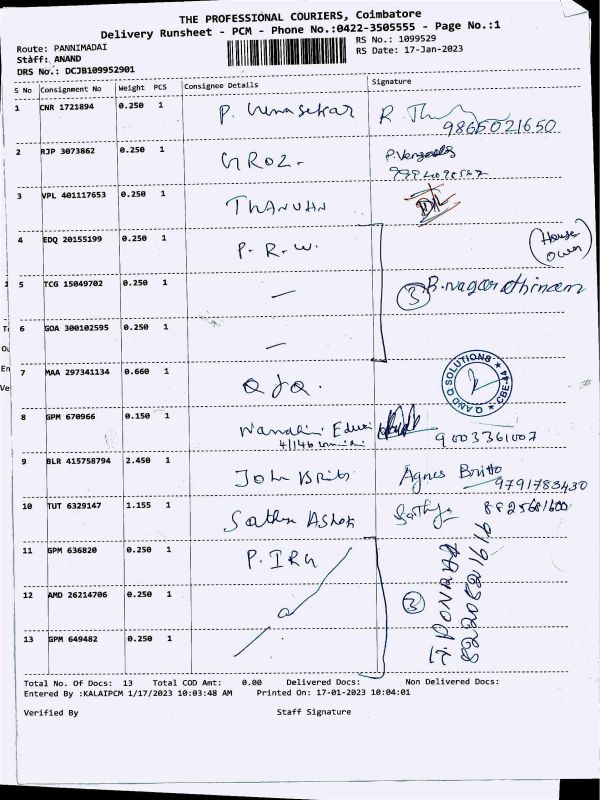 THE PROFESSIONAL COURIERS, Coimbatore
Delivery Runsheet - PCM - Phone No.:0422-3505555 - Page No.:1
Route: PANNIMADAI
RS No.: 1099529
Staff: ANAND
RS Date: 17-Jan-2023
DRS No.: DCJB109952901
S No Consignment No Weight PCS Consignee Details Signature
1 CNR 1721894 0.250 1 P. R.
9865021650
2 RJP 3073862 0.250 1 GROZ-
3 VPL 401117653 0.250 1
4 EDQ 20155199 0.250 1 P. R. W. (House
Own)
5 TCG 15049702 0.250 1 — ③ B.nagarathinam
6 GOA 300102595 0.250 1 —
7 MAA 297341134 0.660 1 Q & Q. Q AND Q SOLUTIONS ★ CBE-44 ★
8 GPM 670966 0.150 1 Nandhini
4/146 9003361007
9 BLR 415758794 2.450 1 John Britto Agnes Britto
9791783430
10 TUT 6329147 1.155 1 Sathya Ashok Sathya
11 GPM 636820 0.250 1 P. IRU
12 AMD 26214706 0.250 1 ③
13 GPM 649482 0.250 1
Total No. Of Docs: 13 Total COD Amt: 0.00 Delivered Docs: Non Delivered Docs:
Entered By :KALAIPCM 1/17/2023 10:03:48 AM Printed On: 17-01-2023 10:04:01
Verified By Staff Signature